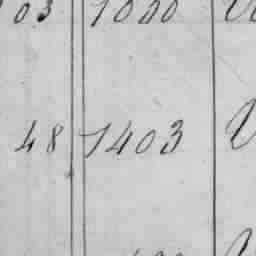 03 1000
48 1403